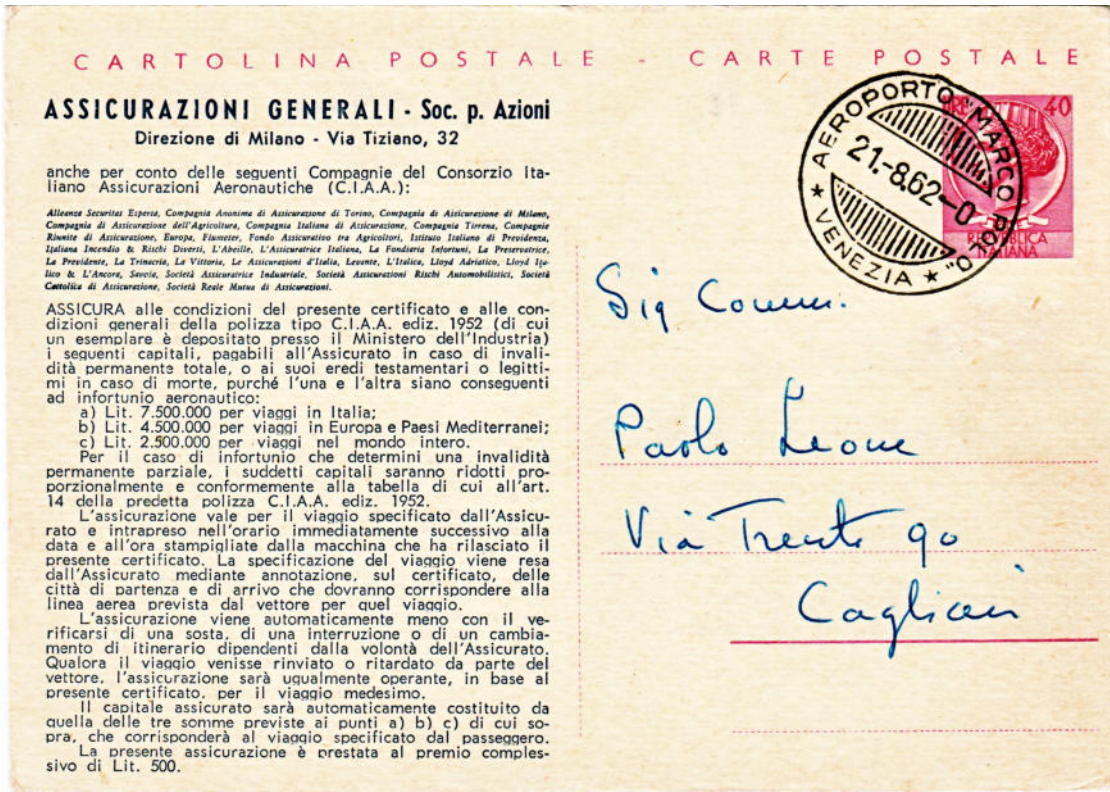 CARTOLINA POSTALE - CARTE POSTALE
ASSICURAZIONI GENERALI - Soc. p. Azioni
Direzione di Milano - Via Tiziano, 32
anche per conto delle seguenti Compagnie del Consorzio Ita-
liano Assicurazioni Aeronautiche (C.I.A.A.):
Alleanza Securitas Esperia, Compagnia Anonima di Assicurazione di Torino, Compagnia di Assicurazione di Milano,
Compagnia di Assicurazione dell'Agricoltura, Compagnia Italiana di Assicurazione, Compagnia Tirrena, Compagnie
Riunite di Assicurazione, Europa, Fiumeter, Fondo Assicurativo tra Agricoltori, Istituto Italiano di Previdenza,
Italiana Incendio & Rischi Diversi, L'Abeille, L'Assicuratrice Italiana, La Fondiaria Infortuni, La Preservatrice,
La Previdente, La Trinacria, La Vittoria, Le Assicurazioni d'Italia, Levante, L'Italica, Lloyd Adriatico, Lloyd Ita-
lico & L'Ancora, Savoia, Società Assicuratrice Industriale, Società Assicurazioni Rischi Automobilistici, Società
Cattolica di Assicurazione, Società Reale Mutua di Assicurazioni.
ASSICURA alle condizioni del presente certificato e alle con-
dizioni generali della polizza tipo C.I.A.A. ediz. 1952 (di cui
un esemplare è depositato presso il Ministero dell'Industria)
i seguenti capitali, pagabili all'Assicurato in caso di invali-
dità permanente totale, o ai suoi eredi testamentari o legitti-
mi in caso di morte, purché l'una e l'altra siano conseguenti
ad infortunio aeronautico:
a) Lit. 7.500.000 per viaggi in Italia;
b) Lit. 4.500.000 per viaggi in Europa e Paesi Mediterranei;
c) Lit. 2.500.000 per viaggi nel mondo intero.
Per il caso di infortunio che determini una invalidità
permanente parziale, i suddetti capitali saranno ridotti pro-
porzionalmente e conformemente alla tabella di cui all'art.
14 della predetta polizza C.I.A.A. ediz. 1952.
L'assicurazione vale per il viaggio specificato dall'Assicu-
rato e intrapreso nell'orario immediatamente successivo alla
data e all'ora stampigliate dalla macchina che ha rilasciato il
presente certificato. La specificazione del viaggio viene resa
dall'Assicurato mediante annotazione, sul certificato, delle
città di partenza e di arrivo che dovranno corrispondere alla
linea aerea prevista dal vettore per quel viaggio.
L'assicurazione viene automaticamente meno con il ve-
rificarsi di una sosta, di una interruzione o di un cambia-
mento di itinerario dipendenti dalla volontà dell'Assicurato.
Qualora il viaggio venisse rinviato o ritardato da parte del
vettore, l'assicurazione sarà ugualmente operante, in base al
presente certificato, per il viaggio medesimo.
Il capitale assicurato sarà automaticamente costituito da
quella delle tre somme previste ai punti a) b) c) di cui so-
pra, che corrisponderà al viaggio specificato dal passeggero.
La presente assicurazione è prestata al premio comples-
sivo di Lit. 500.
AEROPORTO "MARCO POLO"
21.-8.62-0
★ VENEZIA ★
LIRE 40
REPUBBLICA
ITALIANA
Sig Comm.
Paolo Leone
Via Trento 90
Cagliari